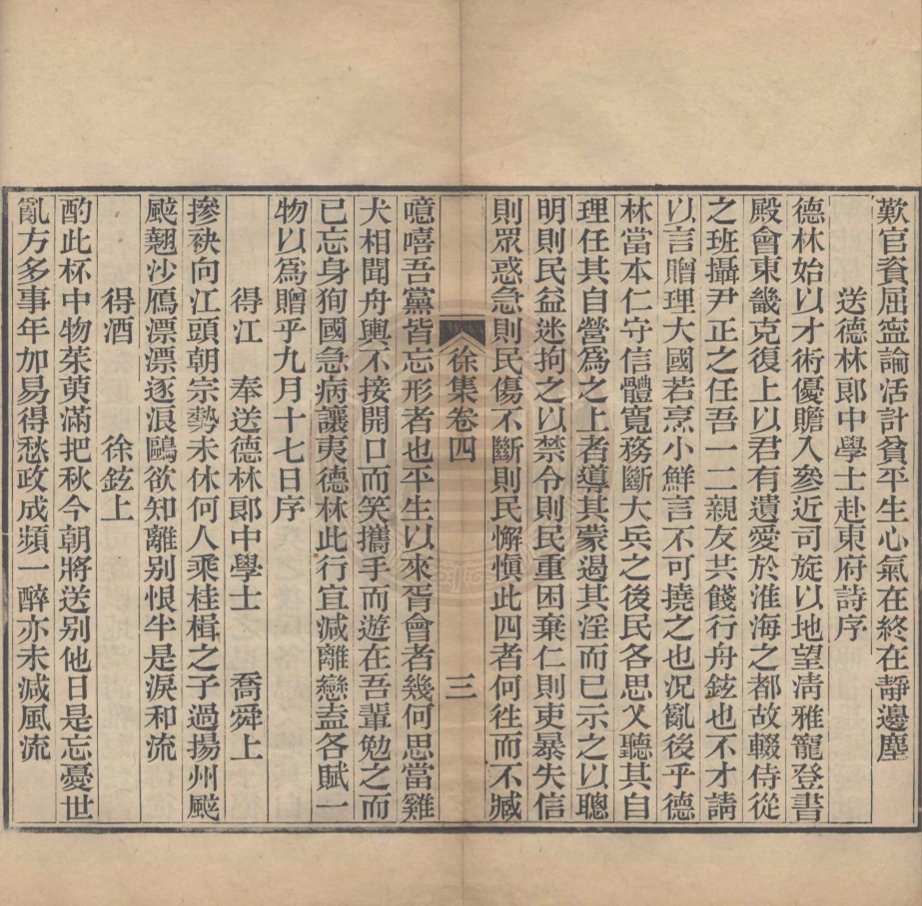 歎官資屈寧論活計貧平生心氣在終在靜邊塵
送德林郎中學士赴東府詩序
德林始以才術優贍入參近司旋以地望淸雅寵登書
殿會東畿克復上以君有遺愛於淮海之都故輟侍從
之班攝尹正之任吾一二親友共餞行舟鉉也不才請
以言贈理大國若烹小鮮言不可撓之也況亂後乎德
林當本仁守信體寬務斷大兵之後民各思乂聽其自
理任其自營爲之上者導其蒙遏其淫而已示之以聰
明則民益迷拘之以禁令則民重困棄仁則吏暴失信
則眾惑急則民傷不斷則民懈愼此四者何徃而不臧
徐集卷四
三
噫嘻吾黨皆忘形者也平生以來胥會者幾何思當雞
犬相聞舟輿不接開口而笑攜手而遊在吾輩勉之而
已忘身狥國急病讓夷德林此行宜減離戀盍各賦一
物以爲贈乎九月十七日序
得江 奉送德林郎中學士 喬舜上
摻袂向江頭朝宗勢未休何人乘桂楫之子過揚州颭
颭翹沙鴈漂漂逐浪鷗欲知離别恨半是淚和流
得酒 徐鉉上
酌此杯中物茱萸滿把秋今朝將送别他日是忘憂世
亂方多事年加易得愁政成頻一醉亦未減風流